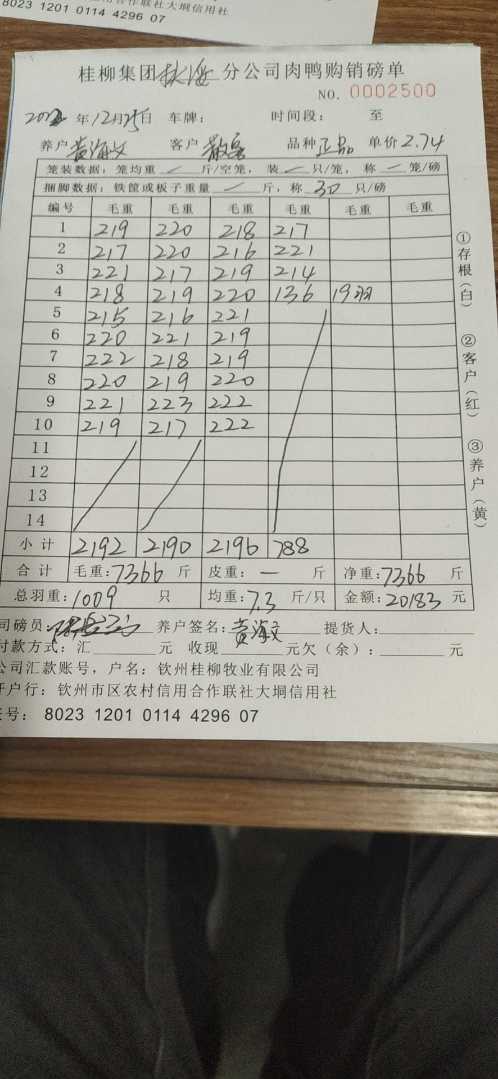 8023 1201 0114 4296 07
合作联社大垌信用社
桂柳集团 分公司肉鸭购销磅单
NO. 0002500
年12月25日 车牌: 时间段: 至
养户 黄海文 客户 散客 品种 正品 单价 2.74
笼装数据: 笼均重 — 斤/空笼, 装 — 只/笼, 称 — 笼/磅
捆脚数据: 铁筐或板子重量 — 斤, 称 30 只/磅
编号 毛重 毛重 毛重 毛重 毛重 毛重
1 219 220 218 217
2 217 220 216 221
3 221 217 219 214
4 218 219 220 136 19羽
5 215 216 221
6 220 221 219
7 222 218 219
8 220 219 220
9 221 223 222
10 219 217 222
11
12
13
14
小计 2192 2190 2196 788
合计 毛重: 7366 斤 皮重: — 斤 净重: 7366 斤
总羽重: 1009 只 均重: 7.3 斤/只 金额: 20183 元
司磅员: 养户签名: 黄海文 提货人:
付款方式: 汇 元 收现 元欠(余): 元
公司汇款账号, 户名: 钦州桂柳牧业有限公司
开户行: 钦州市区农村信用合作联社大垌信用社
账号: 8023 1201 0114 4296 07
①存根(白)
②客户(红)
③养户(黄)